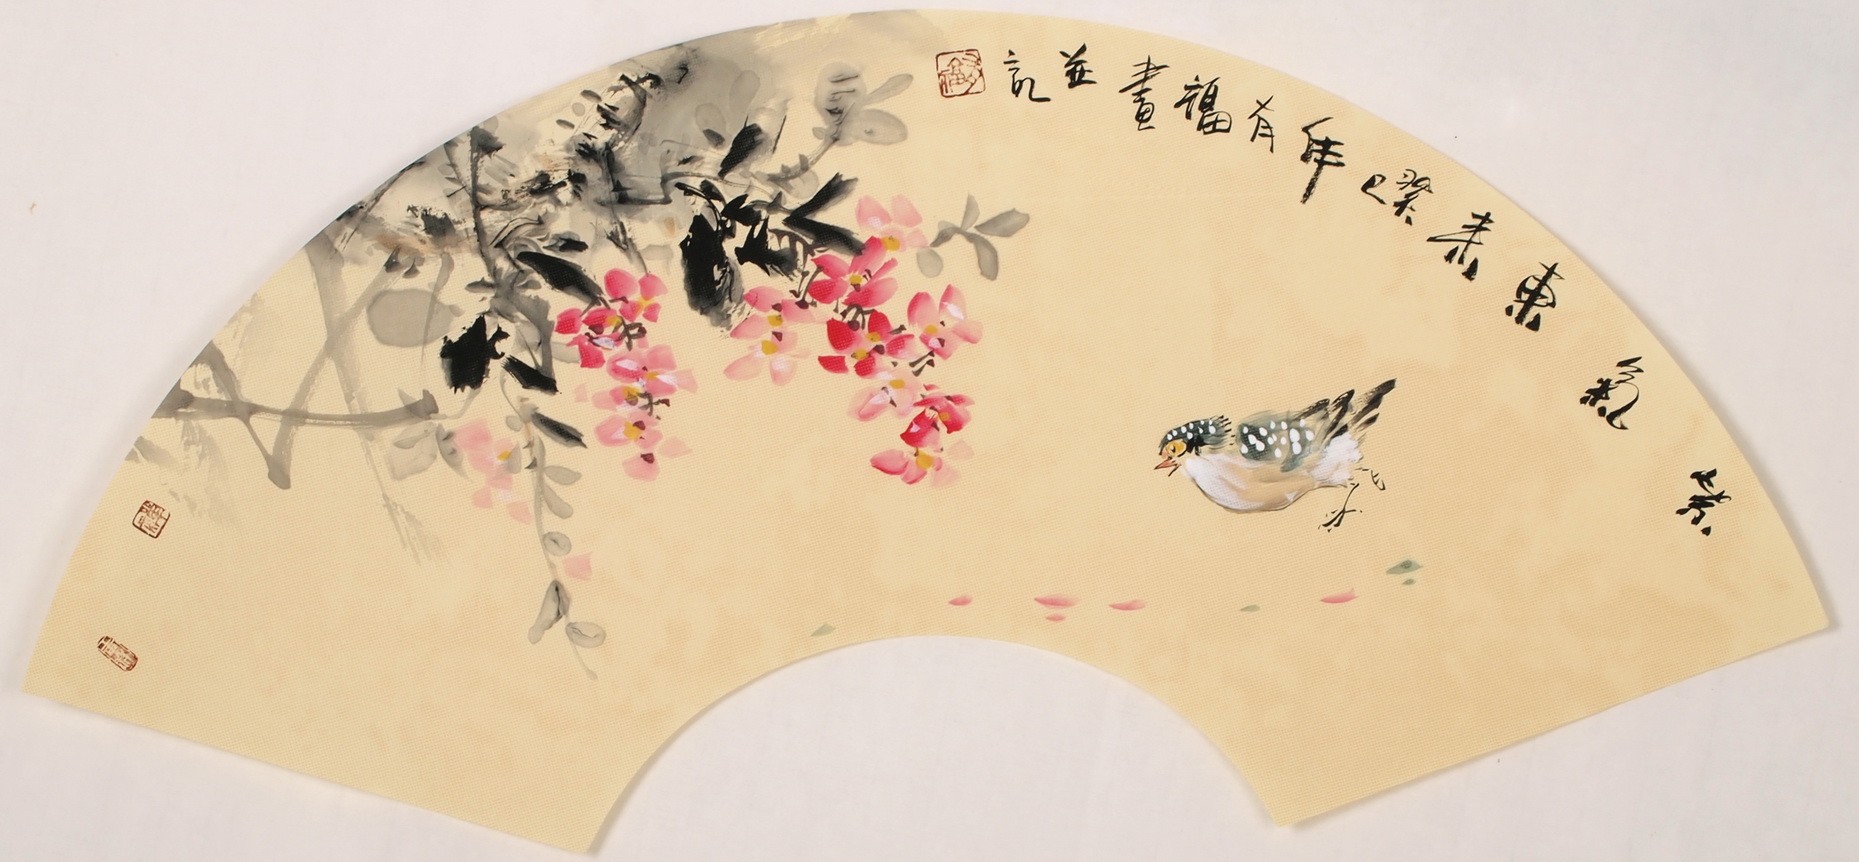 紫氣東来癸巳年有福畫並記